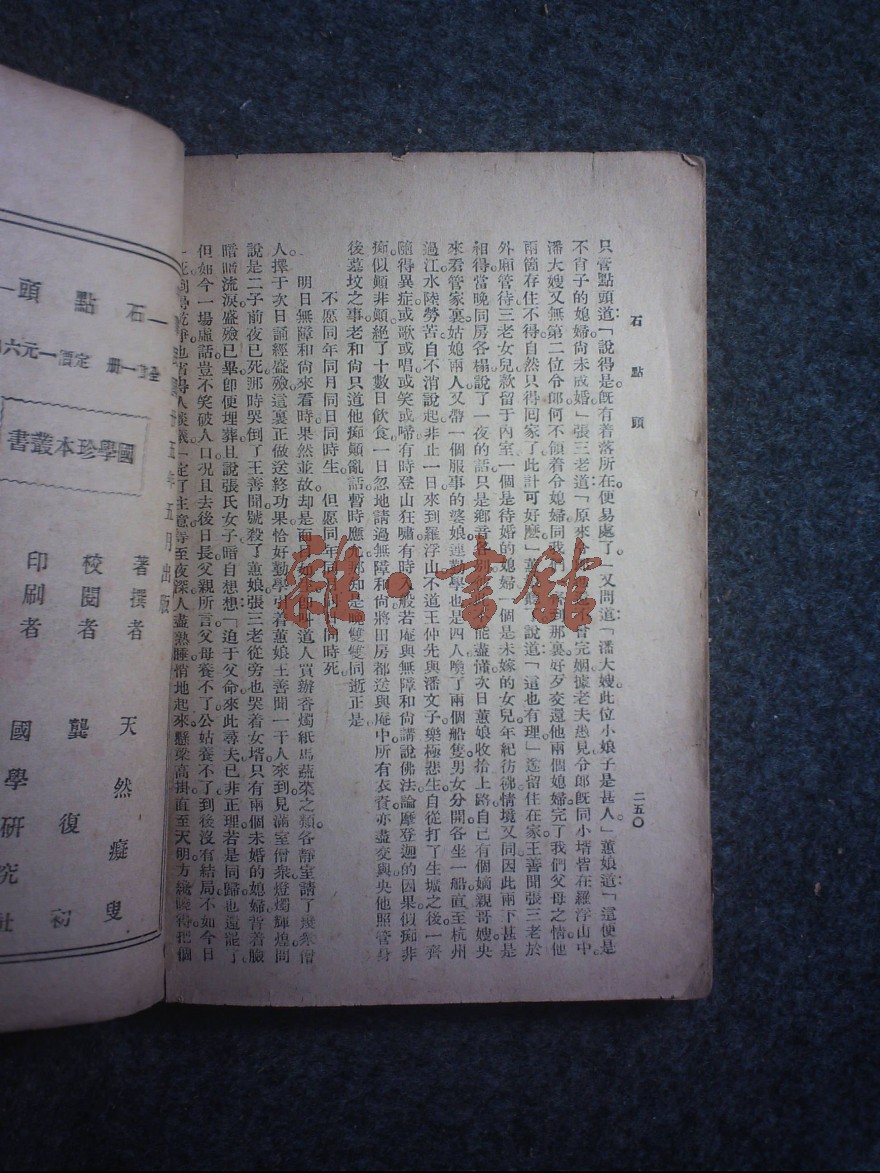 石點頭
二五〇
只管點頭道「說得是既有着落所在便易處了」又問道「潘大嫂此位小娘子是甚人」蕙娘道「這便是
不肖子的媳婦尚未成婚」張三老道「原來 不曾完姻據老夫愚見令郎既同小壻皆在羅浮山中
潘大嫂又無第二位令郎何不領着令媳婦同我們 到那裏好歹交還他兩個媳婦完了我們父母之情他
兩箇存住不得自然只得囘家了此計可好麽」蕙娘 說道「這也有理」遂留住在家王善聞張三老於
外廂管待三老女兒款留于內室一個是待婚的媳婦 個是未嫁的女兒年紀彷彿情境又同因此兩下甚是
相得當晚同房各榻說了一夜的話只是鄉音各別 不能盡懂次日蕙娘收拾上路自己有個嫡親哥嫂央
來看管家裏姑媳兩人又帶一個服事的婆娘連勤學也是四人喚了兩個船隻男女分開各坐一船直至杭州
過江水陸勞苦自不消說起非止一日來到羅浮山不道王仲先與潘文子樂極悲生自從打了生壙之後一齊
隨得異症或歌或唱或笑或啼有時登山狂嘯有時入般若庵與無障和尚講說佛法論摩登迦的因果似痴非
痴似顚非顚絕了十數日飲食一日忽地請過無障和尚將田房都送與庵中所有衣資亦盡交與央他照管身
後墓坟之事老和尚只道他痴顚亂話暫時應允那知是晚雙雙同逝正是
不愿同年同月同日同時生。 但愿同年同月同日同時死。
明日無障和尚來看時果然並故却是面 如 卽叫道人買辦香燭紙馬蔬菜之類各靜室請了幾衆僧
人擇于次日誦經盛殮這裏正做送終功果恰好勤學引着蕙娘王善聞一干人來到見滿室僧衆燈燭輝煌問
說是二子前夜已死那時哭倒了王善聞號殺了蕙娘張三老從旁也哭着女壻只有兩個未婚的媳婦背着臉
暗暗流淚盛殮已畢卽便埋葬且說張氏女子暗自想想「迫于父命來此尋夫已非正理若是同歸也還罷了
但如今一場虛話豈不笑破人口況且去後日長父親所言父母養不了公姑養不了到後沒有結局不如今日
一死 得乾淨也省得人談議一定了主意等至夜深人盡熟睡悄地起來懸梁高掛直至天明方纔曉得把個
五年五月出版
石點頭
全一冊 定價一元六
國學珍本叢書
著撰者 天然癡叟
校閱者 龔復初
印刷者 國學研究社
雜·書館